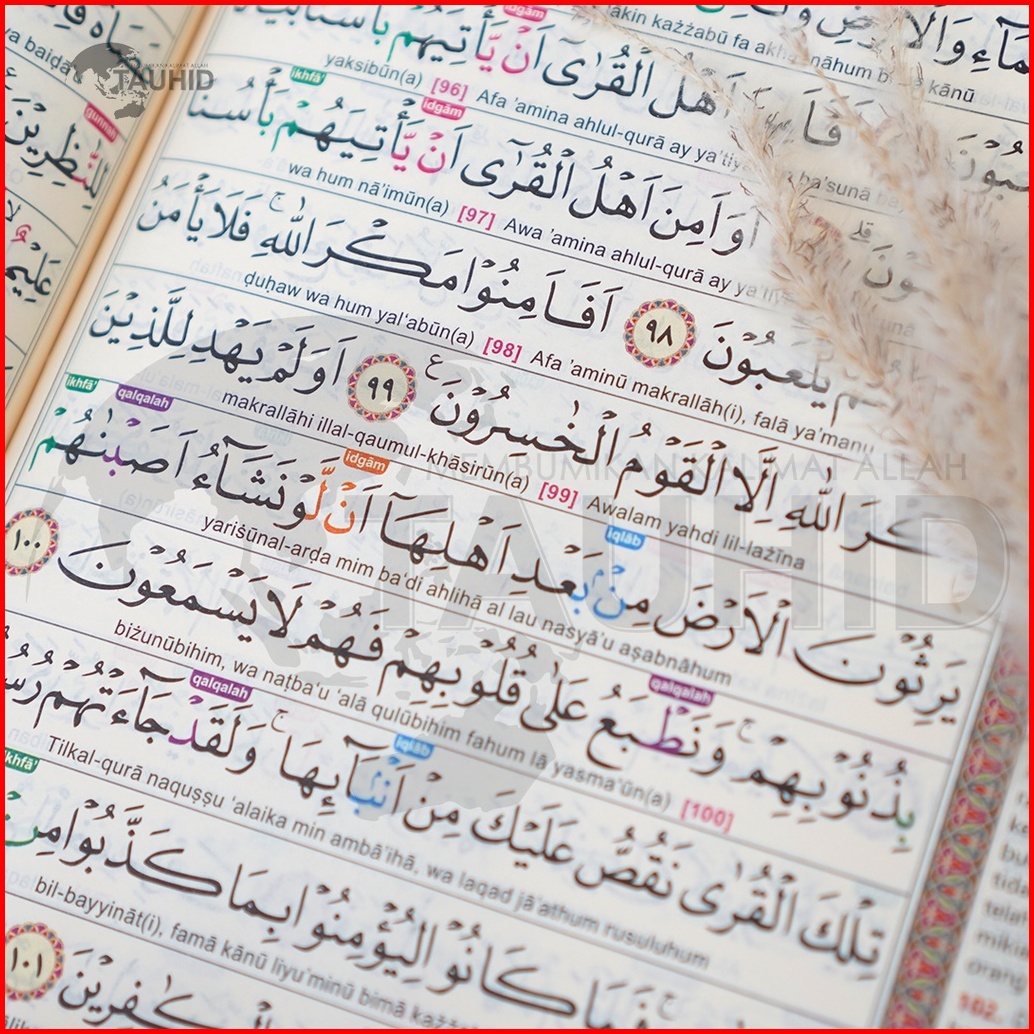 TAUHID
MEMBUMIKAN KALIMAT ALLAH
TAUHID
kin każżabū fa
nāhum
kānū
idgām
اَهْلُ الْقُرٰٓى اَنْ يَّأْتِيَهُمْ بَأْسُنَا بَيَاتًا
yaksibūn(a) [96] Afa ’amina ahlul-qurā ay ya’tiya
ba’sunā
ikhfā’ idgām
اَوَاَمِنَ اَهْلُ الْقُرٰٓى اَنْ يَّأْتِيَهُمْ بَأْسُنَا
wa hum nā’imūn(a) [97] Awa ’amina ahlul-qurā ay ya’tiy
يَلْعَبُوْنَ ٩٨ اَفَاَمِنُوْا مَكْرَ اللّٰهِۚ فَلَا يَأْمَنُ
ḍuḥaw wa hum yal‘abūn(a) [98] Afa ’aminū makrallāh(i), falā ya’manu
مَكْرَ اللّٰهِ اِلَّا الْقَوْمُ الْخٰسِرُوْنَ ࣖ ٩٩ اَوَلَمْ يَهْدِ لِلَّذِيْنَ
makrallāhi illal-qaumul-khāsirūn(a) [99] Awalam yahdi lil-lażīna
ikhfā’ qalqalah idgām iqlāb
يَرِثُوْنَ الْاَرْضَ مِنْۢ بَعْدِ اَهْلِهَآ اَنْ لَّوْ نَشَاۤءُ اَصَبْنٰهُمْ
yariṡūnal-arḍa mim ba‘di ahlihā al lau nasyā’u aṣabnāhum
qalqalah
بِذُنُوْبِهِمْۚ وَنَطْبَعُ عَلٰى قُلُوْبِهِمْ فَهُمْ لَا يَسْمَعُوْنَ ١٠٠
biżunūbihim, wa naṭba‘u ‘alā qulūbihim fahum lā yasma‘ūn(a) [100]
qalqalah iqlāb
تِلْكَ الْقُرٰى نَقُصُّ عَلَيْكَ مِنْ اَنْۢبَاۤىِٕهَاۚ وَلَقَدْ جَاۤءَتْهُمْ
Tilkal-qurā naquṣṣu ‘alaika min ambā’ihā, wa laqad jā’athum rusuluhum
ikhfā’
فَمَا كَانُوْا لِيُؤْمِنُوْا بِمَا كَذَّبُوْا مِنْ
bil-bayyināt(i), famā kānū liyu’minū bimā
الْكٰفِرِيْنَ ١٠١
gunnah
لِلنّٰظِرِيْنَ
عَلِيْمٌ
102.